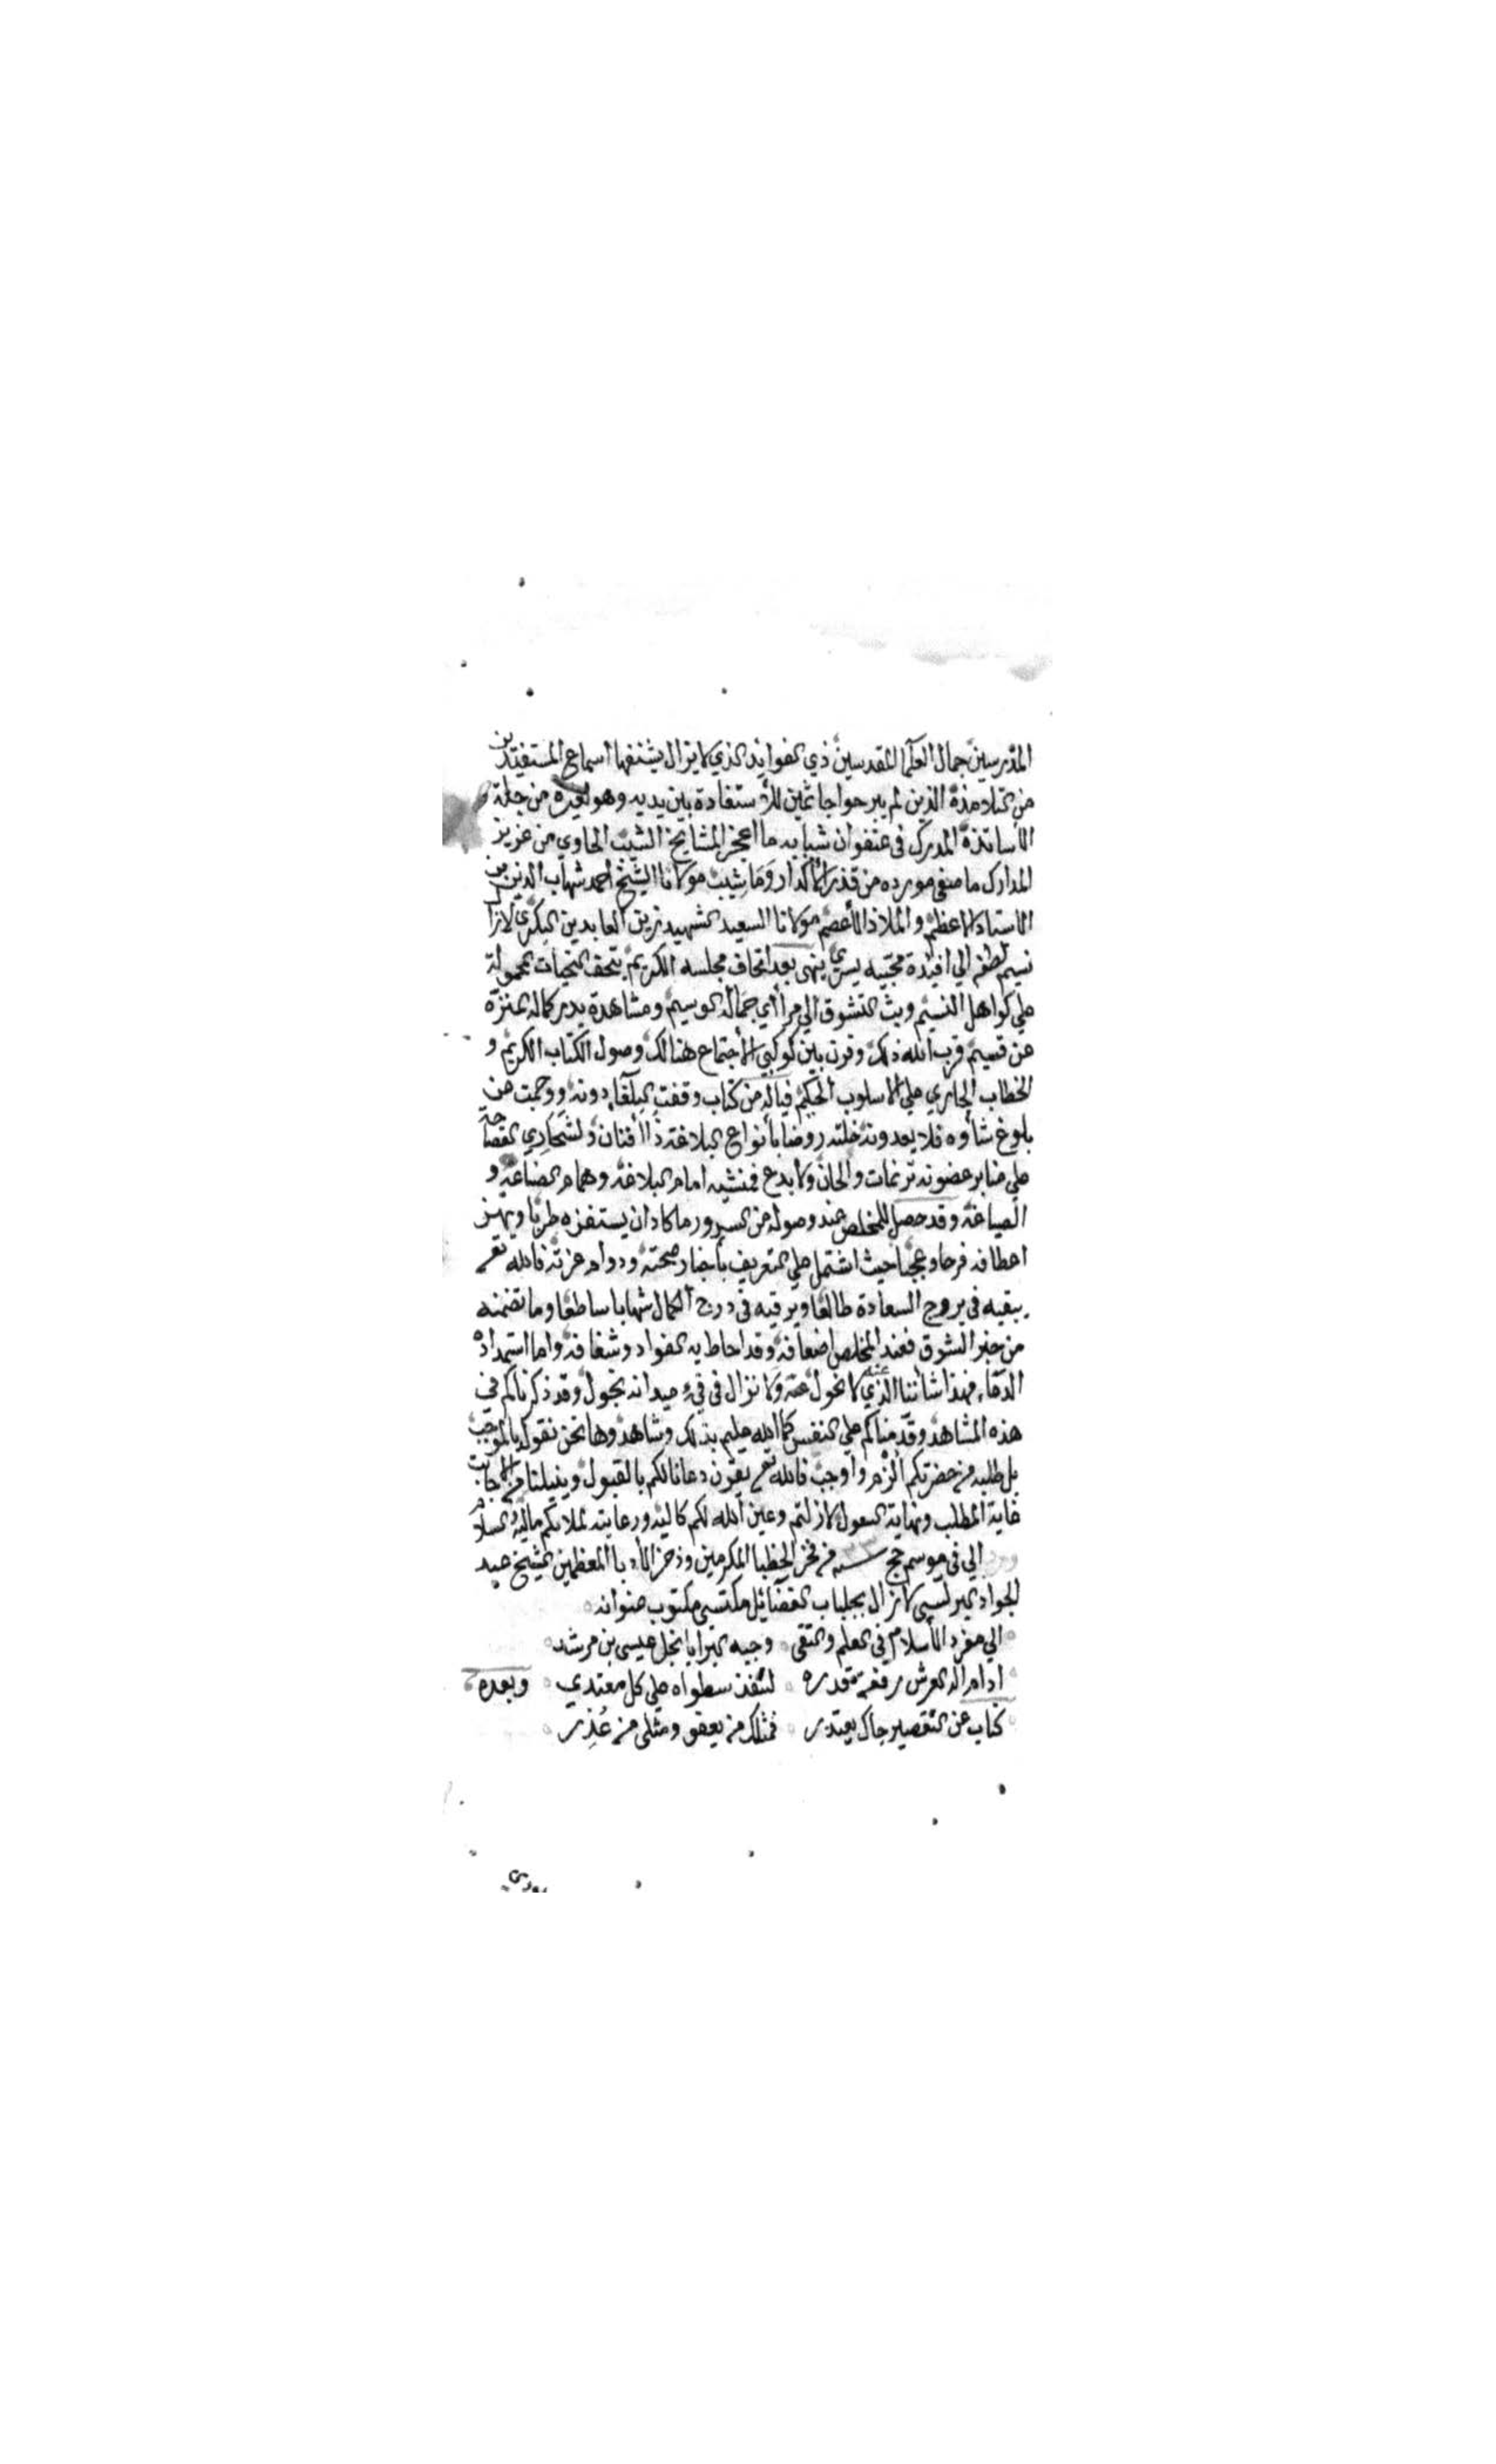 المدرسين جمال العلما المقدسين ذي الفوايد الذي لا يزال يشنفها أسماع المستفيدين
من التلامذة الذين لم يبرحوا جاثمين للأستفادة بين يديه وهو لعمره من جلة
الأساتذة المدرك في عنفوان شبابه ما اعجز المشايخ الشيب الحاوي من عزيز
المدارك ما صفي مورده من قذر الأكدار وما شيب مولانا الشيخ أحمد شهاب الدين بن
الاستاد الاعظم والملاذ الأعصم مولانا السعيد الشهيد زين العابدين البكري لا زا
نسيم لطفه الي افئدة محبيه يسري ينهي بعد اتحاف مجلسه الكريم بتحف التحيات المحمولة
علي كواهل النسيم وبث التشوق الي مرأي جماله الوسيم ومشاهدة بدر كماله المنزه
عن قسيم قرب الله ذلك وقرن بين كوكبي الأجتماع هنالك وصول الكتاب الكريم و
الخطاب الجاري علي الاسلوب الحكيم فياله من كتاب وقفت البلغا دونه ووجمت من
بلوغ شأوه فلا يعدونه خلته روضا بأنواع البلاغة ذا أفنان ولشحاري الفصاحة
علي منابر غصونه ترنمات والحان ولا بدع فمنشيه امام البلاغة وهمام الصناعة و
الصياغة وقد حصل للمخلص عند وصوله من السرور ما كاد ان يستفزه طربا ويهز
اعطافه فرحا وعجبا حيث اشتمل علي التعريف بأخبار صحته ودوام عزته فالله تعر
يبقيه في بروج السعادة طالعا ويرقيه في درج الكمال شهابا ساطعا وما تضمنه
من خبر الشوق فعند المخلص اضعافه وقد احاط به الفواد وشغافه واما استمداد
الدعا فهذا شأننا الذي لا نحول عنه ولا نزال في ميدانه نجول وقد ذكرناكم في
هذه المشاهد وقدمناكم علي النفس كما الله عليم بذلك وشاهد وها نحن نقول بالموجب
بل طلبه من حضرتكم الزم واوجب فالله تعر يقرن دعانا لكم بالقبول وينيلنا من الاجابت
غاية المطلب ونهاية السول لا زلتم وعين الله لكم كاليه ورعايته لملاكم ماليه والسلام
الي في موسم حج سنه ٣٣ من فخر الخطبا المكرمين وذخر الأدبا المعظمين الشيخ عبد
الجواد البرلسي لا زال بجلباب الفضائل مكتسي مكتوب عنوانه
الي مفرد الأسلام في العلم والتقي وجيه البرايا نجل عيسي بن مرشد
ادام اله العرش رفعة قدره لتنفذ سطواه علي كل معتدي وبعده
كتاب عن التقصير جاك يعتذر فمثلك من يعفو ومثلي من عذر